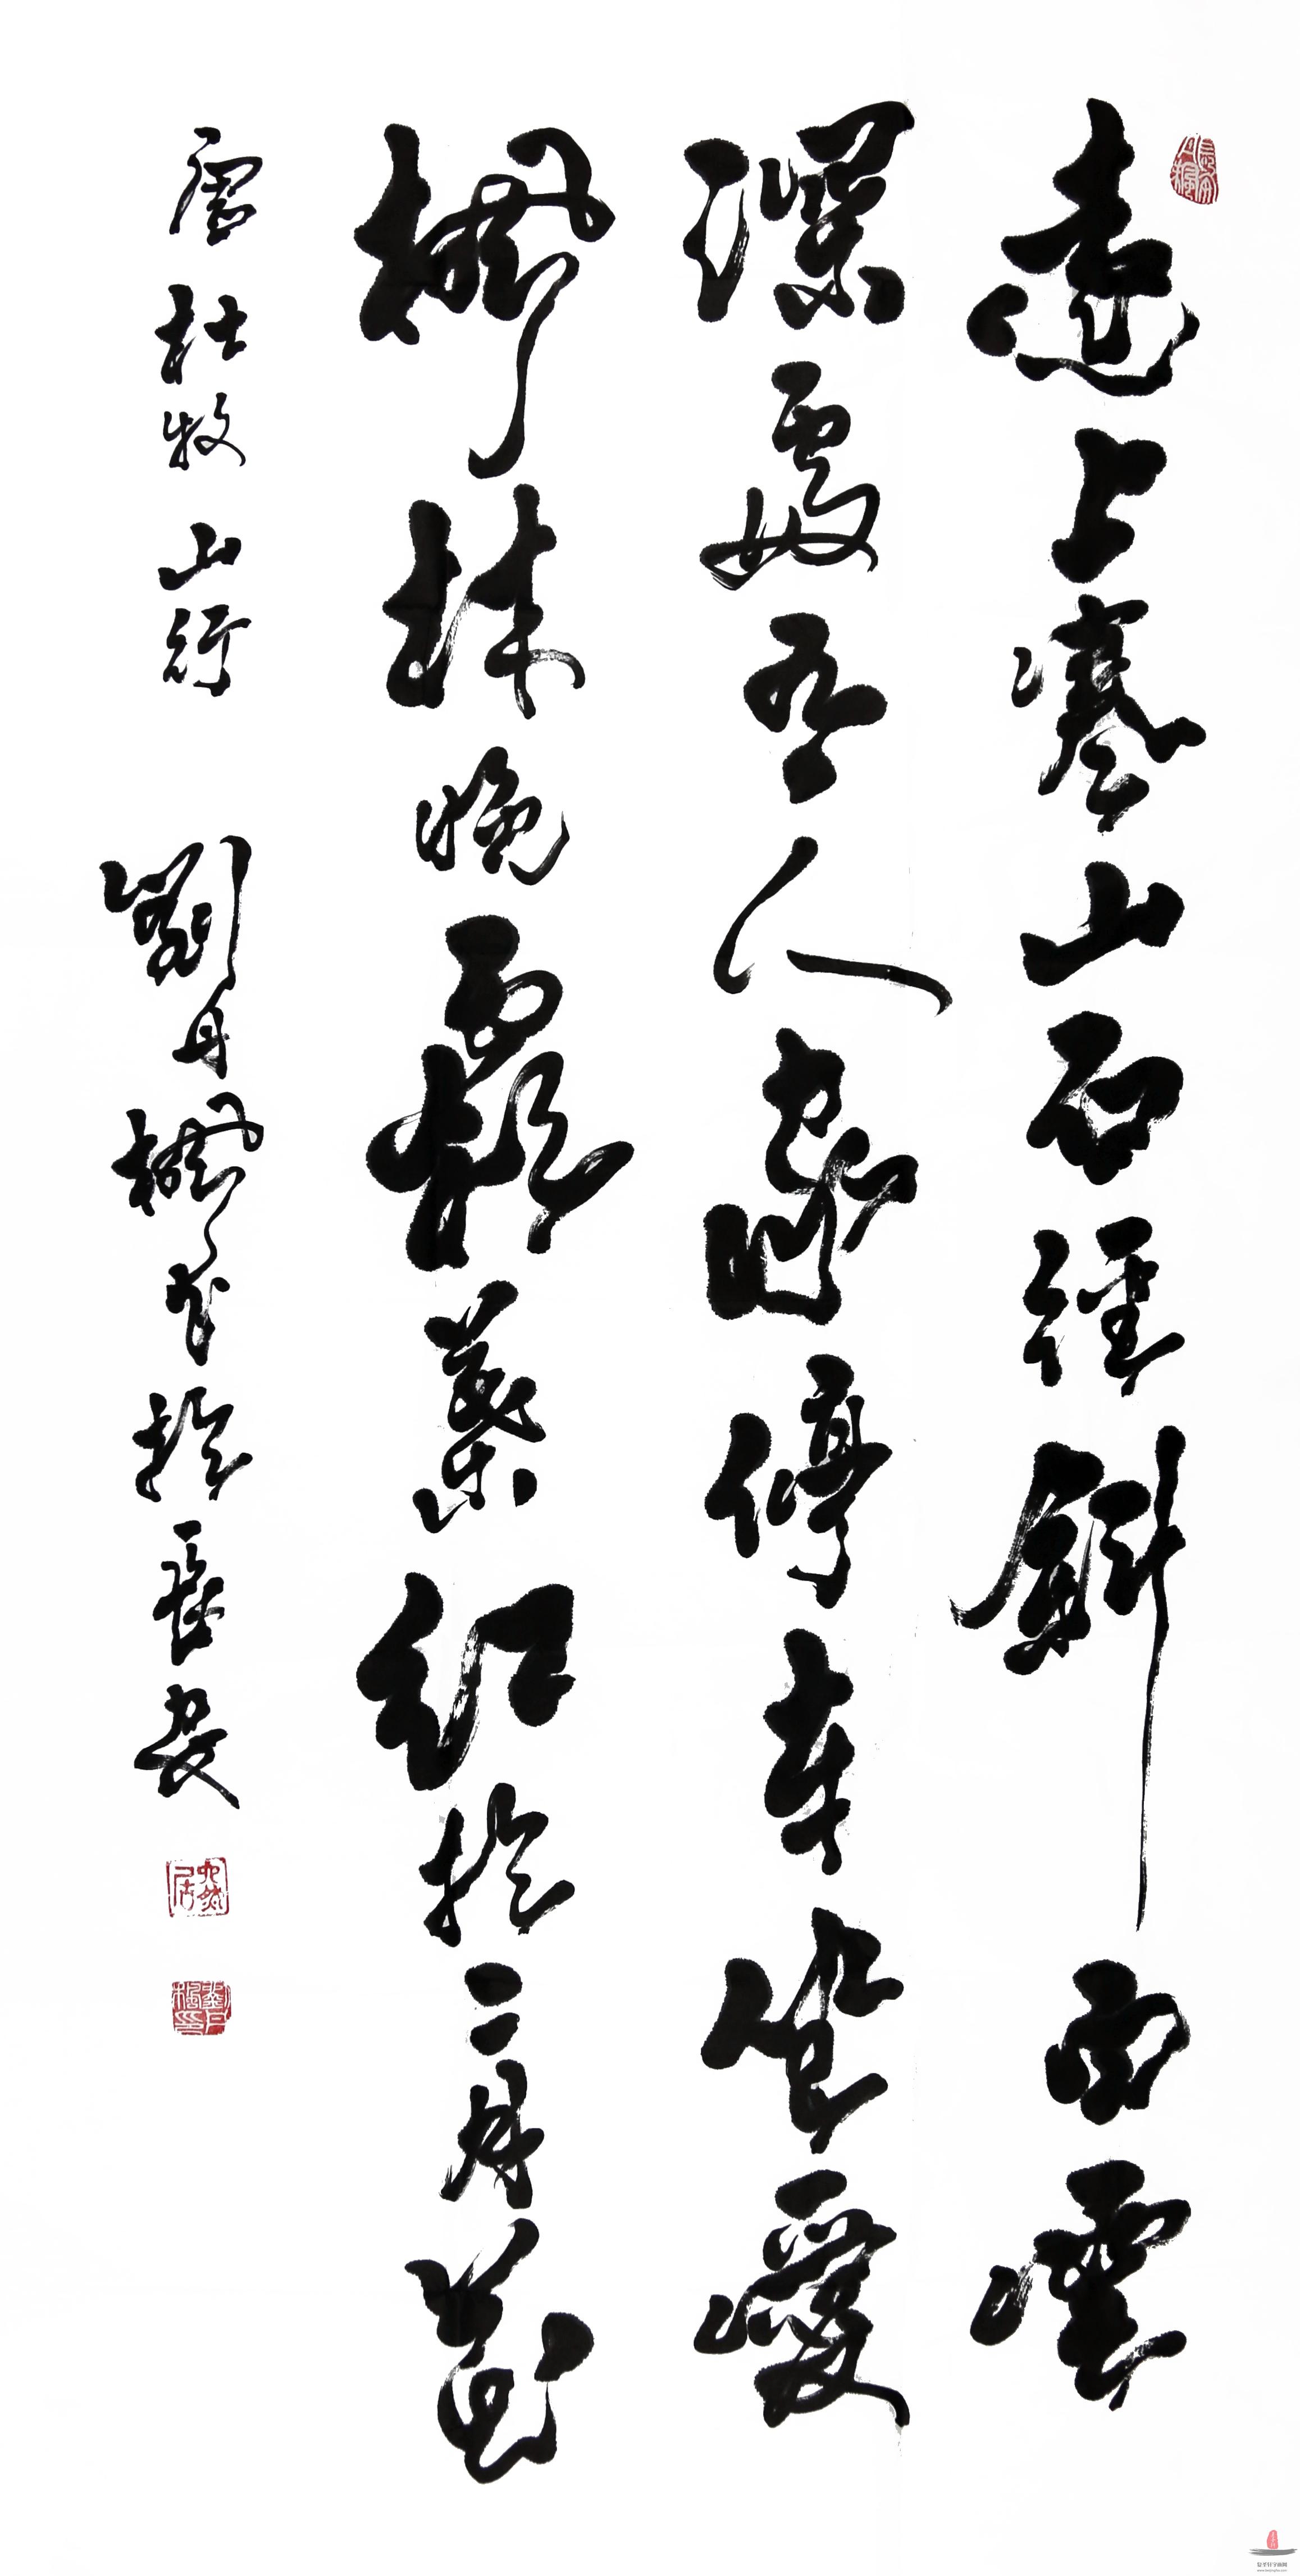 遠上寒山石徑斜白雲
深處有人家停車坐愛
楓林晚霜葉紅於二月花
唐杜牧山行 劉丹楓書於長安